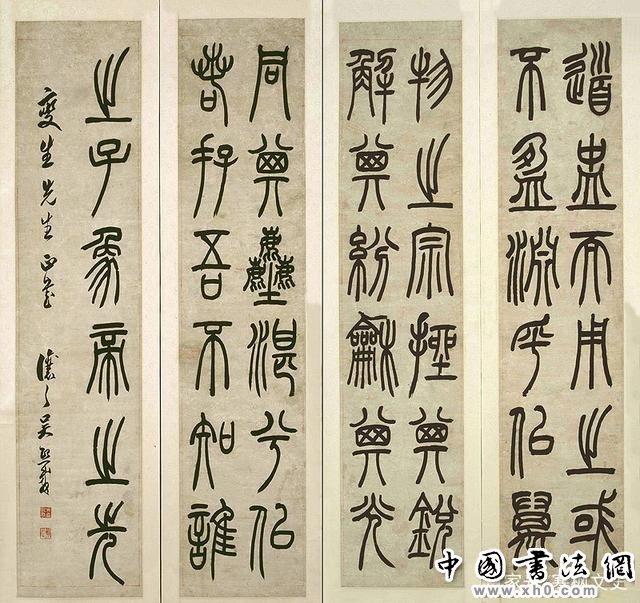 道盅而用之或
不盈淵乎佀萬
物之宗挫其銳
解其紛龢其光
同其塵湛兮佀
若存吾不知誰
之子象帝之先
生先生正
讓之吳熙載
中國書法網
www.xh0.com